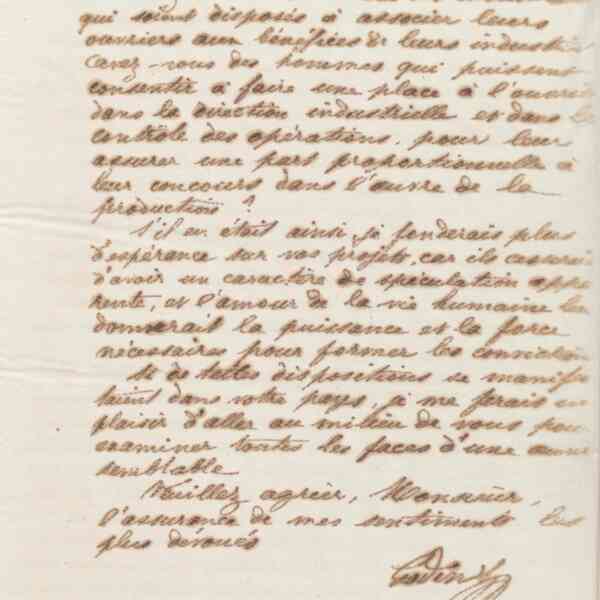 qui soient disposés à associer leurs
ouvriers aux bénéfices de leurs industries
avez-vous des hommes qui puissent
consentir à faire une place à l'ouvrier
dans la direction industrielle et dans le
contrôle des opérations, pour leur
assurer une part proportionnelle à
leur concours dans l'œuvre de la
production ?
S'il en était ainsi, je fonderais plus
d'espérance sur vos projets, car ils cesseraient
d'avoir un caractère de spéculation appa
rente, et l'amour de la vie humaine leur
donnerait la puissance et la force
nécessaires pour former les convictions
Si de telles dispositions se manifes
taient dans votre pays, je me ferais un
plaisir d'aller au milieu de vous pour
examiner toutes les faces d'une œuvre
semblable
Veuillez agréer, Monsieur,
l'assurance de mes sentiments les
plus dévoués
Godin